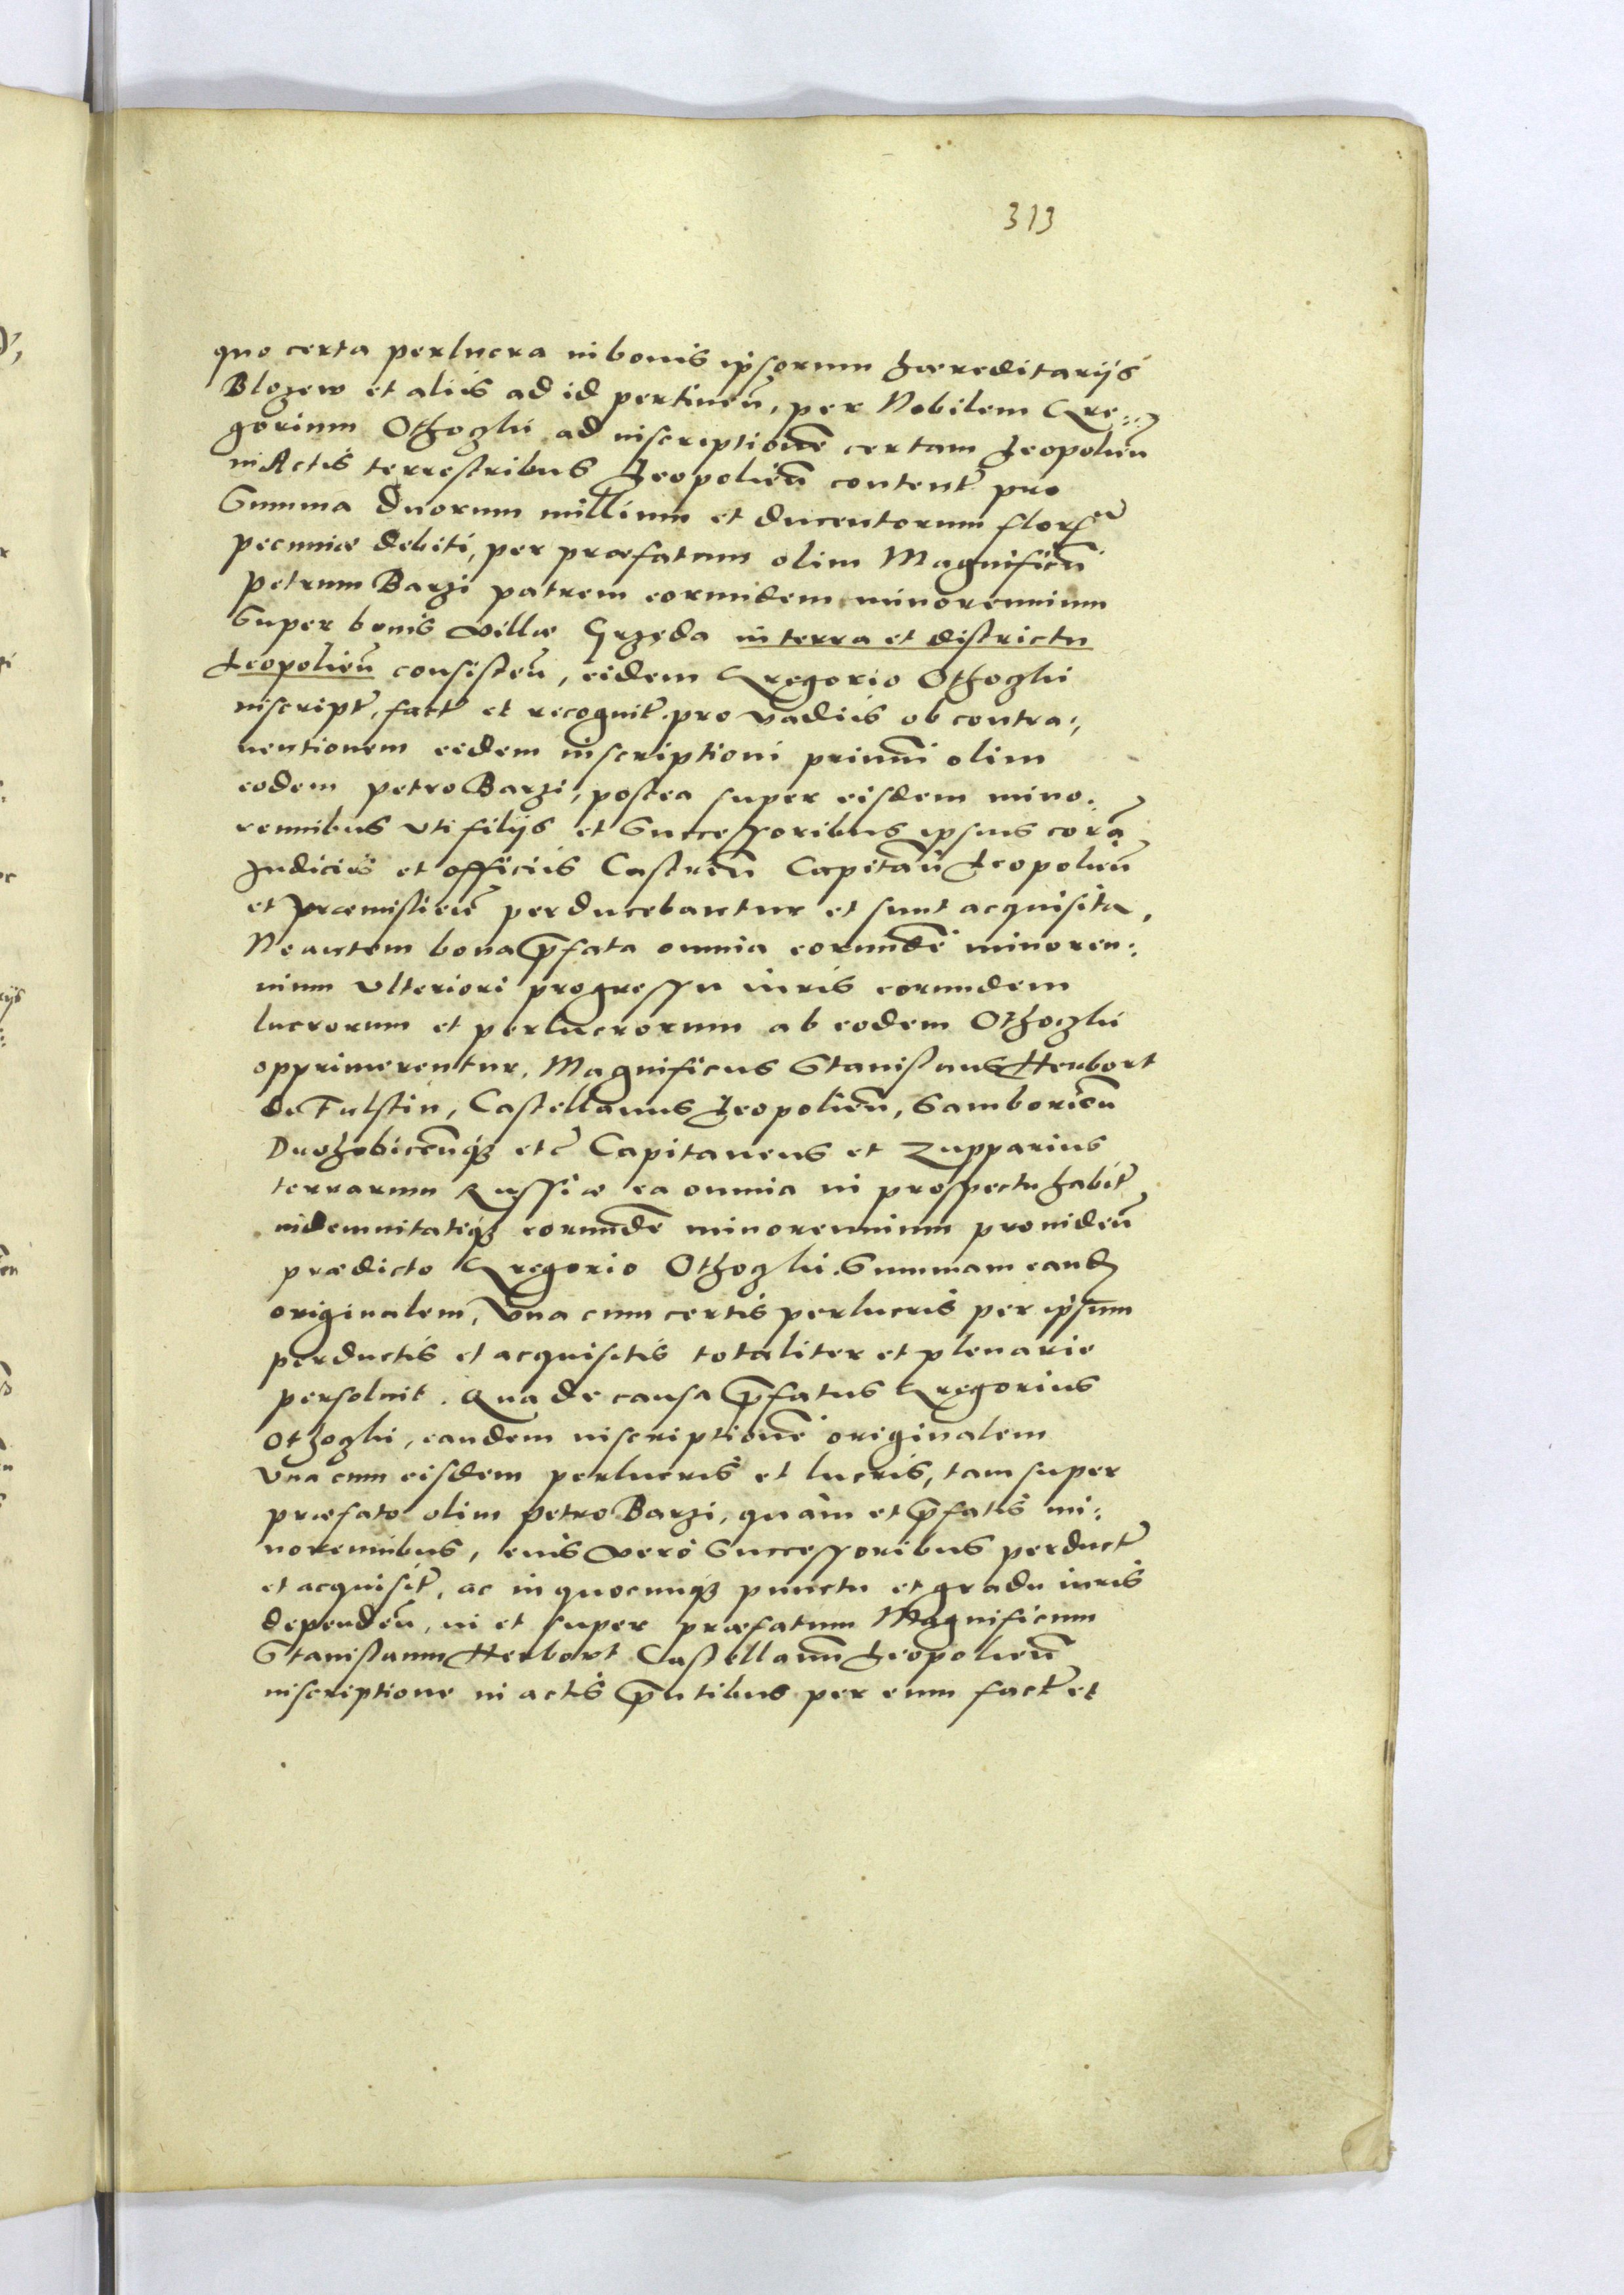 313
quo certa perlucra in bonis ipsorum hæreditarijs
Blozew et aliis ad id pertineñ, per Nobilem Gre:,
gorium Othoczki ad inscriptionẽ certam Leopolieñ
in Actis terrestribus Leopolieñ content̃ pro
Summa Duorum millium et ducentorum flor
pecuniæ debiti, per præfatum olim Magnificũ
Petrum Barzi patrem eorundem minorennium
Super bonis villæ Grzęda in terra et districtu
Leopolieñ consisteñ, eidem Gregorio Othoczki
inscript̃, fact̃ et recognit̃ pro vadiis ob contra:,
uentionem eidem inscriptioni primũ olim
eodem Petro Barzi, postea super eisdem mino:,
rennibus vti filijs et Successoribus ipsius corã
Judiciis et officiis Castreñ Capitañ Leopolieñ
et Præmislieñ perducebantur et sunt acquisita,
Ne autem bona p̃fata omnia eorundẽ minoren:
nium vlteriori progressu iuris eorundem
lucrorum et perlucrorum ab eodem Othoczki
opprimerentur. Magnificus Stanislaus Herbort
de Fulstin, Castellanus Leopolieñ, Samborieñ
Drohobiceñq3 etc̃ Capitaneus et Zupparius
terrarum Russiæ ea omnia in prospectu habit̃
indemnitatiq3 eorundẽ minorennium prouideñ
prædicto Gregorio Othoczki Summam eand
originalem, vna cum certis perlucris per ipsum
perductis et acquisitis totaliter et plenarie
persoluit. Qua de causa p̃fatus Gregorius
Othoczki, eandem inscriptionẽ originalem
vna cum eisdem perlucris et lucris, tam super
præfato olim Petro Barzi, quàm et p̃fatis mi:
norennibus, eius verò Successoribus perduct̃
et acquisit̃, ac in quocunq3 punctu et gradu iuris
dependeñ, in et super præfatum Magnificum
Stanislaum Herbort Castellanũ Leopolieñ
inscriptione in actis p̃ntibus per eum fact̃ et